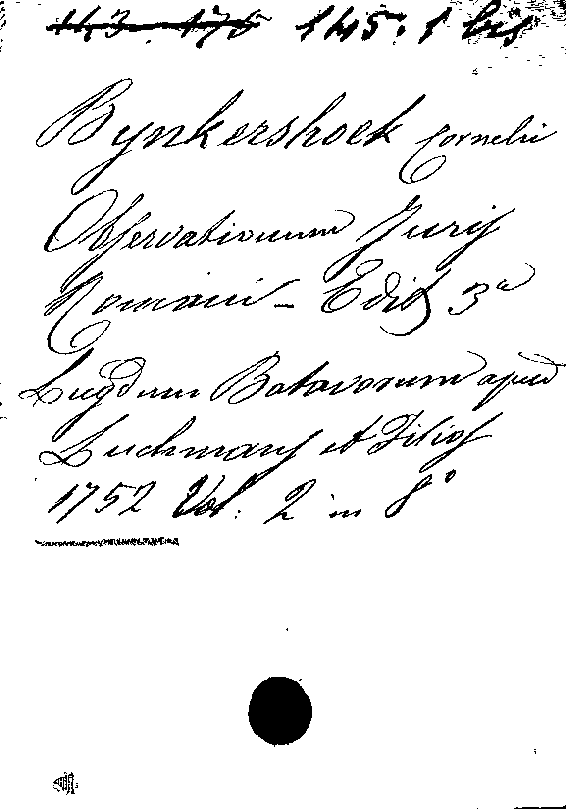 143. 176 145. 1 bis
Bynkershoek Cornelii
Observationum Juris
Romani - Edit 3a
Lugdum Batavorum apud
Luchmans et Filios
1752 Vol: 2 in 8°